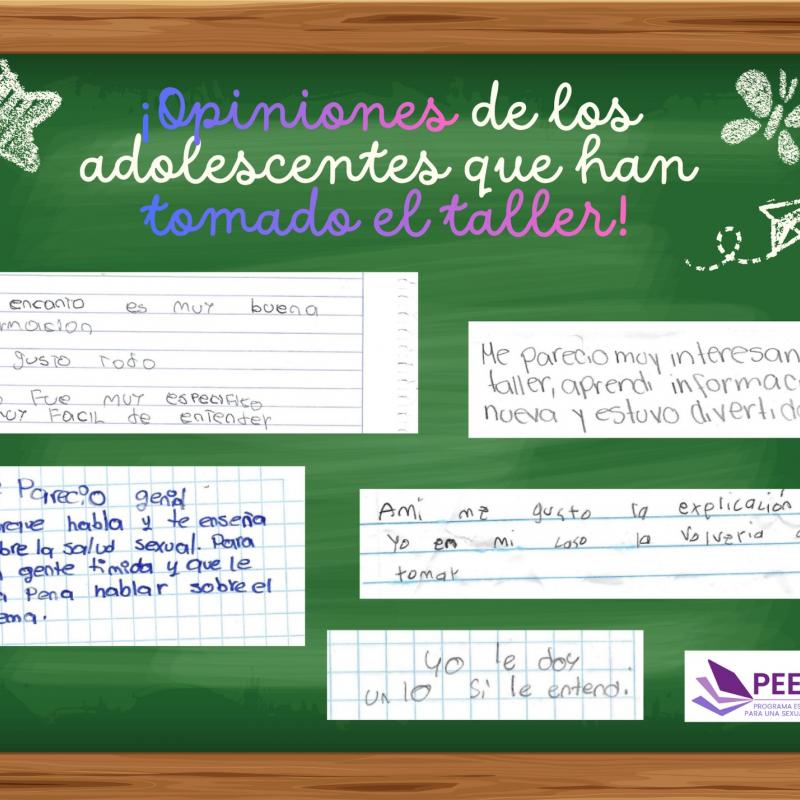 ¡Opiniones de los
adolescentes que han
tomado el taller!
encanto es muy buena
rmacion
gusto todo
o Fue muy especifico
uy Facil de entender
Me parecio muy interesan
taller, aprendi informaci
nueva y estuvo divertido
Parecio genial
rque habla y te enseña
bre la salud sexual. Para
gente timida y que le
a Pena hablar sobre el
ema.
Ami me gusto la explicación
Yo en mi caso la volveria a
tomar
yo le doy
un 10 si le entendi.
PEE
PROGRAMA ES
PARA UNA SEXU